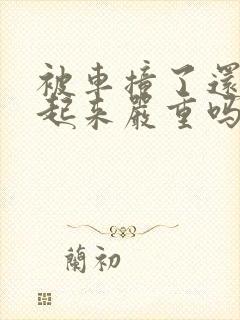 被車撞了還
起來嚴重嗎
蘭初